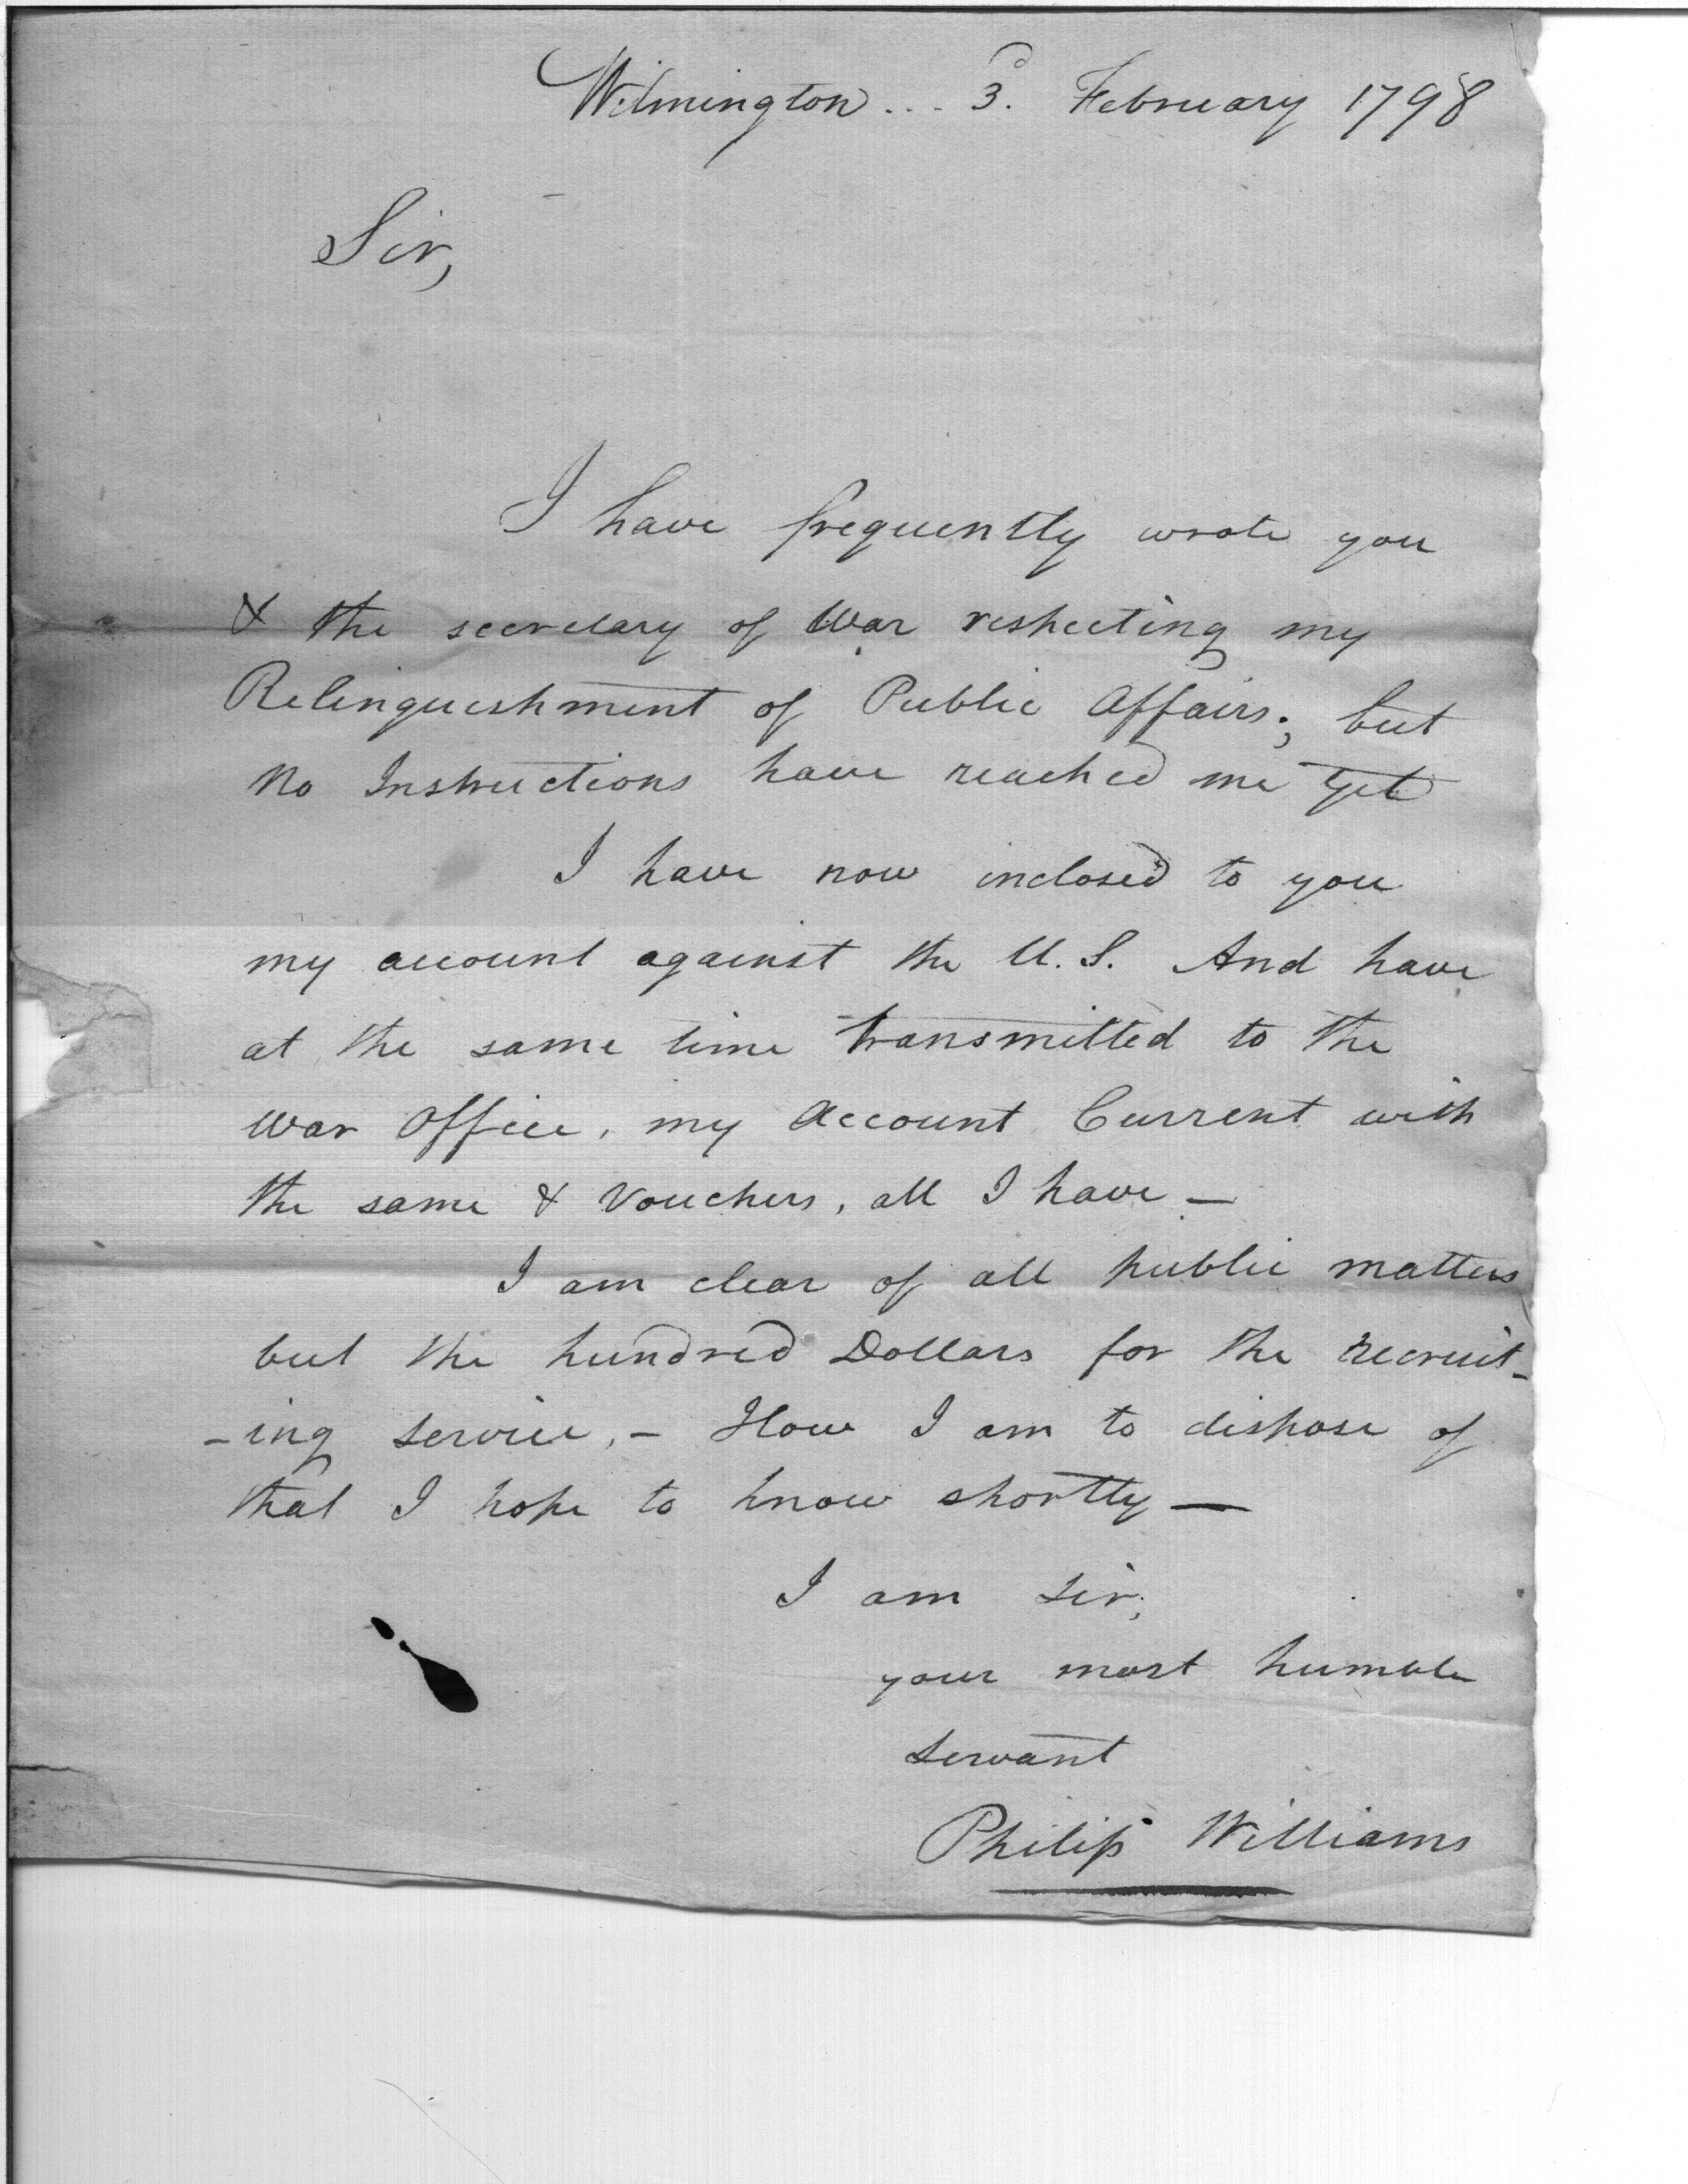 Wilmington... 3d. February 1798
Sir,
I have frequently wrote you
& the secretary of War respecting my
Relinquishment of Public Affairs; but
No Instructions have reached me yet
I have now inclosed to you
my account against the U.S. And have
at the same time transmitted to the
War Office, my Account Current with
the same & Vouchers, all I have —
I am clear of all public matters
but the hundred Dollars for the recruit-
-ing service, - How I am to dispose of
that I hope to know shortly —
I am Sir,
your most humble
servant
Philip Williams